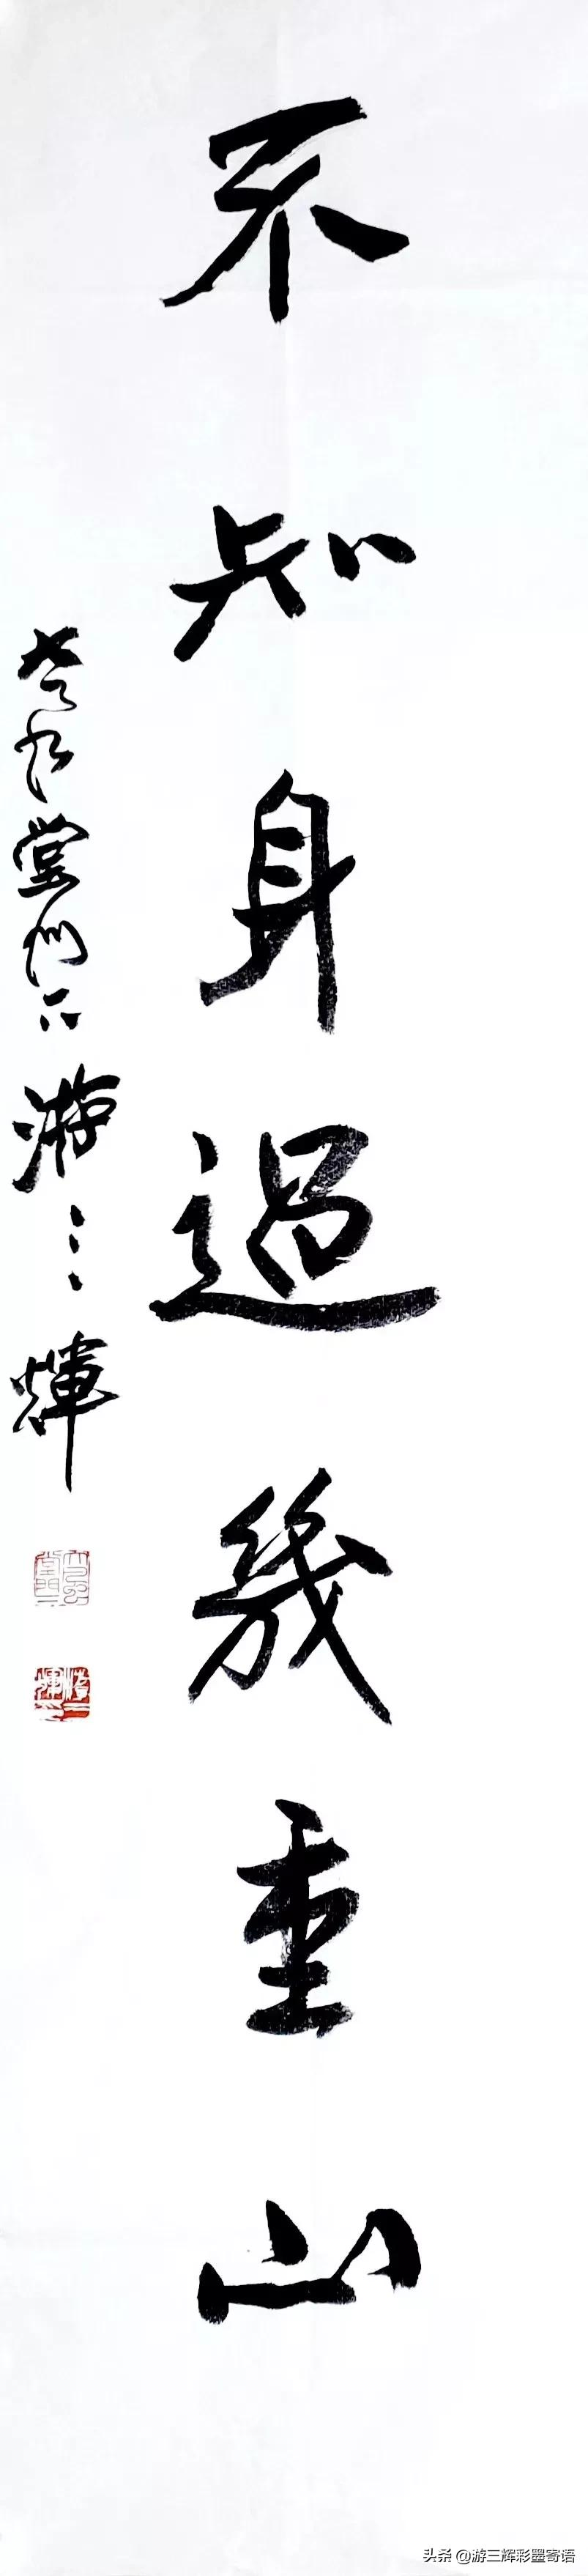 不知身過幾重山
大風堂門下 游三輝
头条 @游三辉彩墨寄语